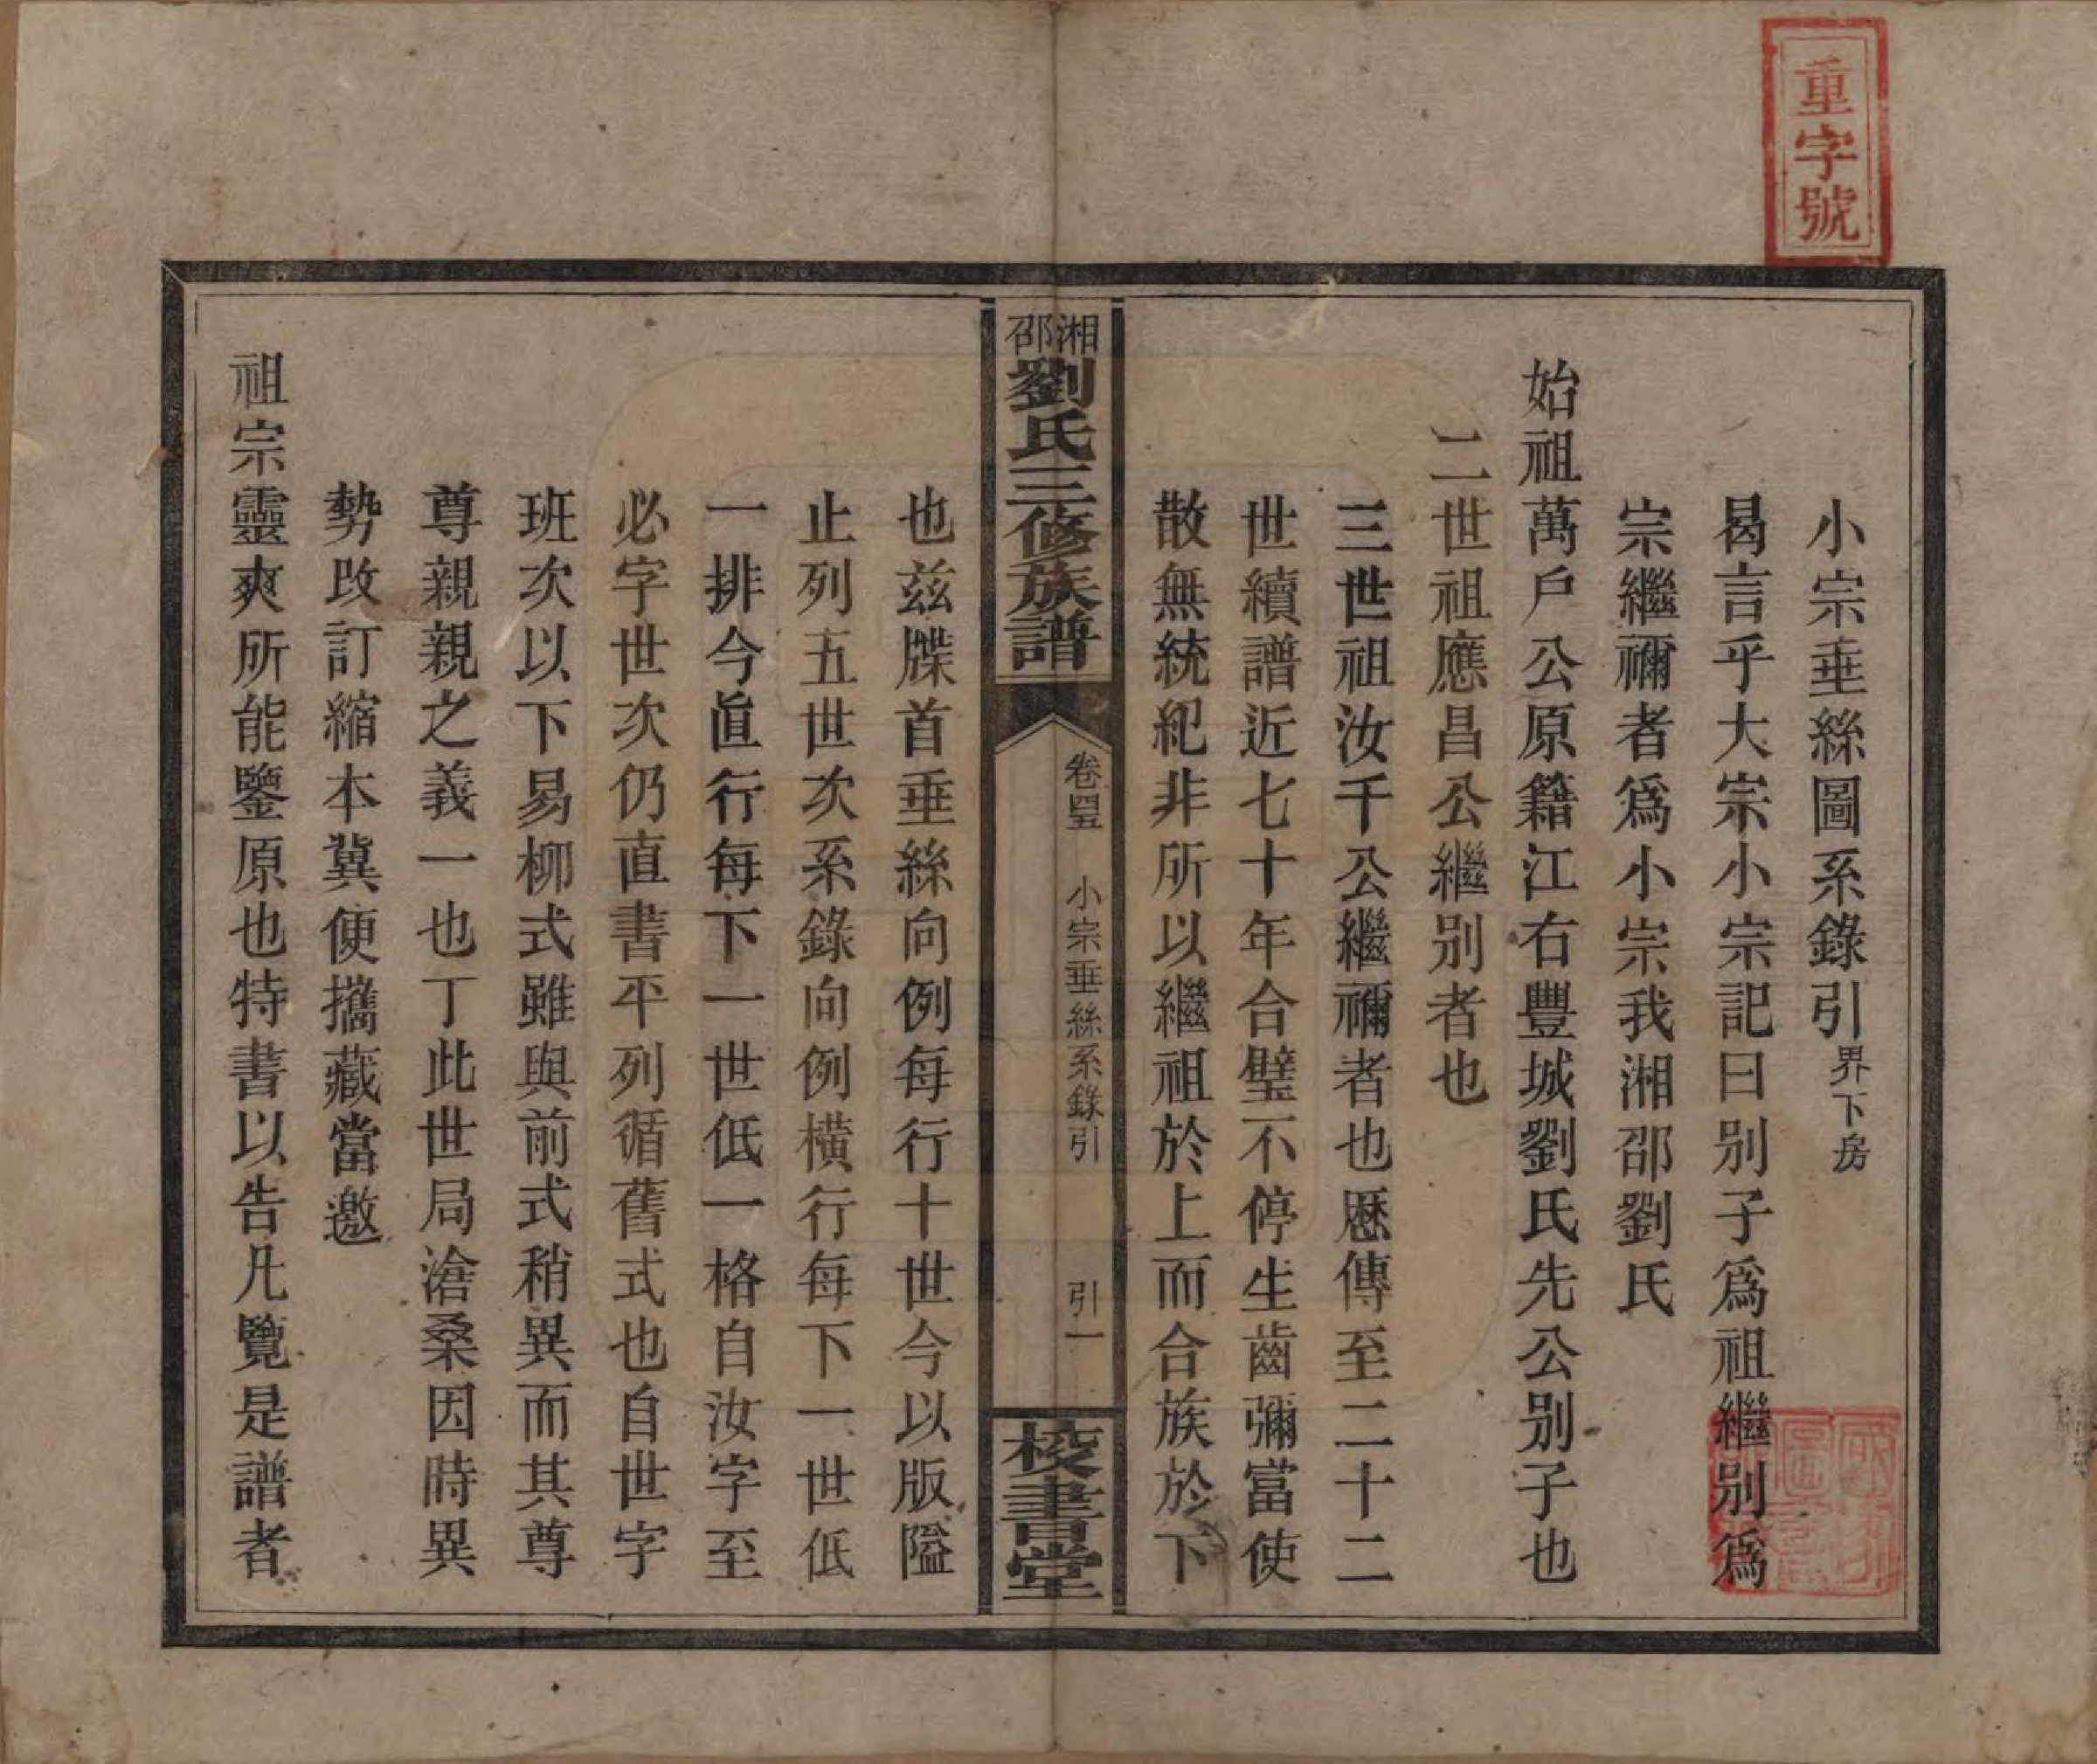 重字號
小宗垂絲圖系錄引界下房
曷言乎大宗小宗記曰別子爲祖繼別爲
宗繼禰者爲小宗我湘邵劉氏
始祖萬戶公原籍江右豐城劉氏先公別子也
二世祖應昌公繼別者也
三世祖汝千公繼禰者也歷傳至二十二
世續譜近七十年合璧不停生齒彌當使
散無統紀非所以繼祖於上而合族於下
湘邵劉氏三修族譜
卷四五
小宗垂絲系錄引
引一
校書堂
也茲牒首垂絲向例每行十世今以版隘
止列五世次系錄向例橫行每下一世低
一排今直行每下一世低一格自汝字至
必字世次仍直書平列循舊式也自世字
班次以下易柳式雖與前式稍異而其尊
尊親親之義一也丁此世局滄桑因時異
勢改訂縮本冀便攜藏當邀
祖宗靈爽所能鑒原也特書以告凡覽是譜者